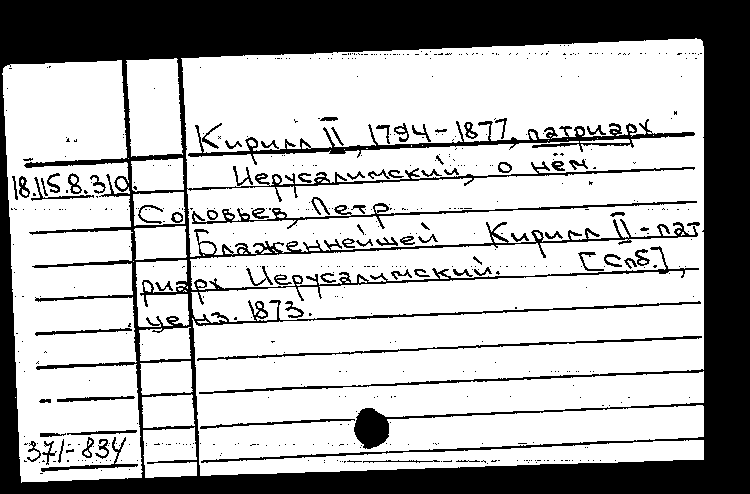 Кирилл II, 1794-1877, патриарх
18.115.8.310. Иерусалимский, о нём.
Соловьев, Петр
Блаженнейшей Кирилл II-пат
риарх Иерусалимский. [Спб.],
ценз. 1873.
371-834